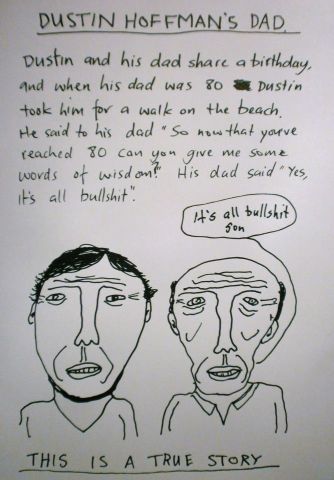 DUSTIN HOFFMAN'S DAD.
Dustin and his dad share a birthday,
and when his dad was 80 Dustin
took him for a walk on the beach.
He said to his dad "So now that you've
reached 80 can you give me some
words of wisdom?" His dad said "Yes,
it's all bullshit".
It's all bullshit
son
THIS IS A TRUE STORY